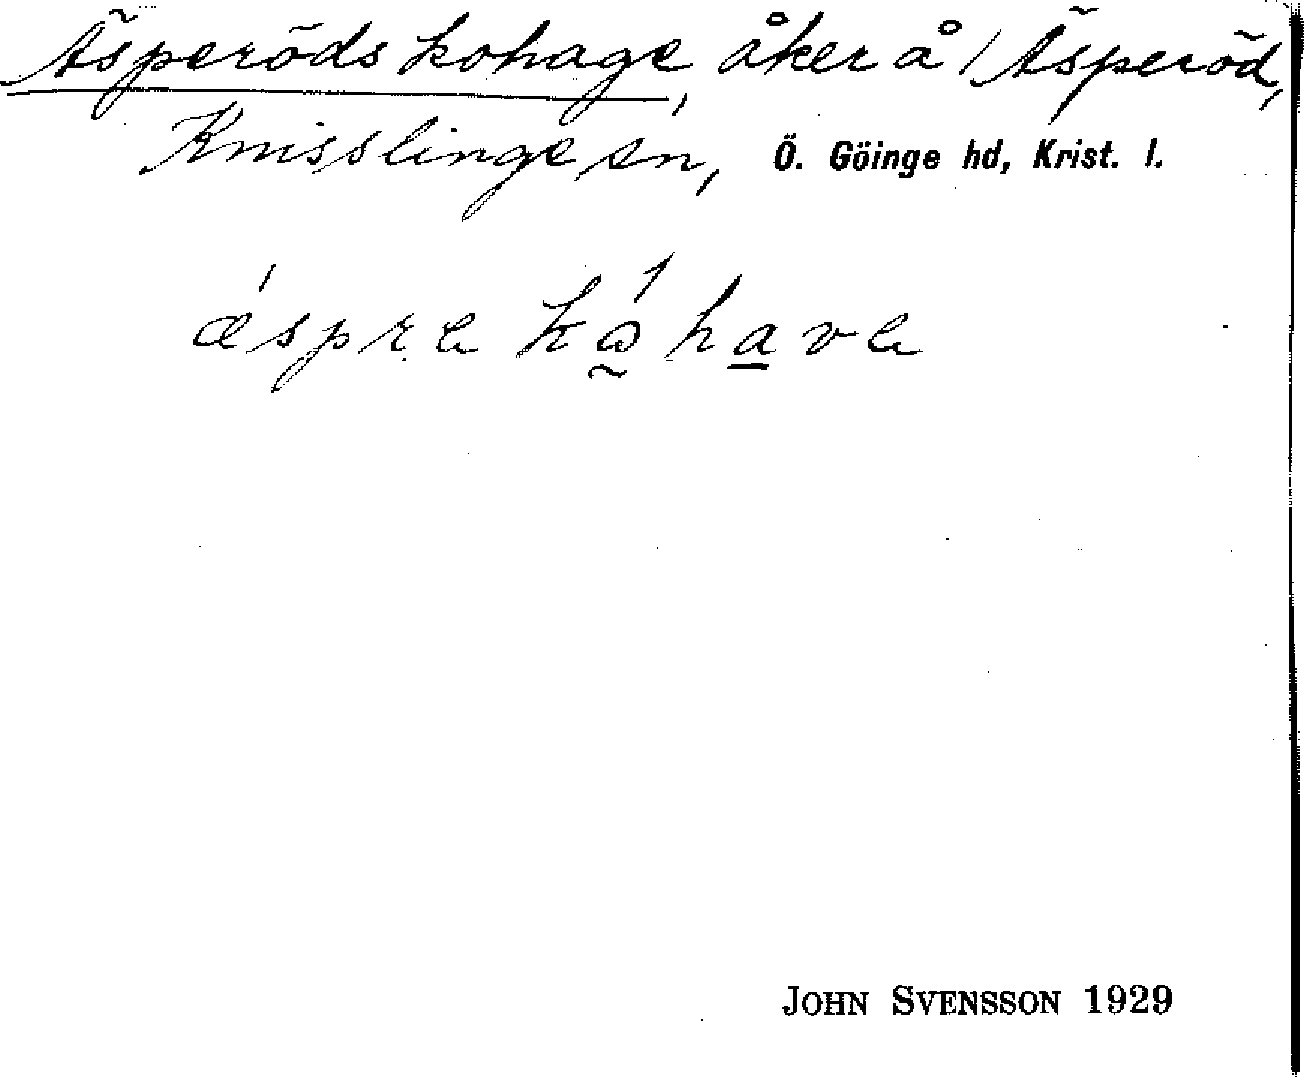 Äsperöds kohage, åker å Äsperöd,
Knisslinge sn, Ö. Göinge hd, Krist. l.
JOHN SVENSSON 1929